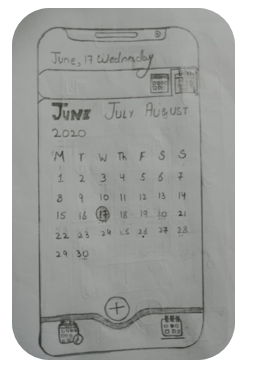 June, 17 Wednesday
JUNE JULY AUGUST
2020
M T W Th F S S
1 2 3 4 5 6 7
8 9 10 11 12 13 14
15 16 17 18 19 10 21
22 23 24 25 26 27 28
29 30